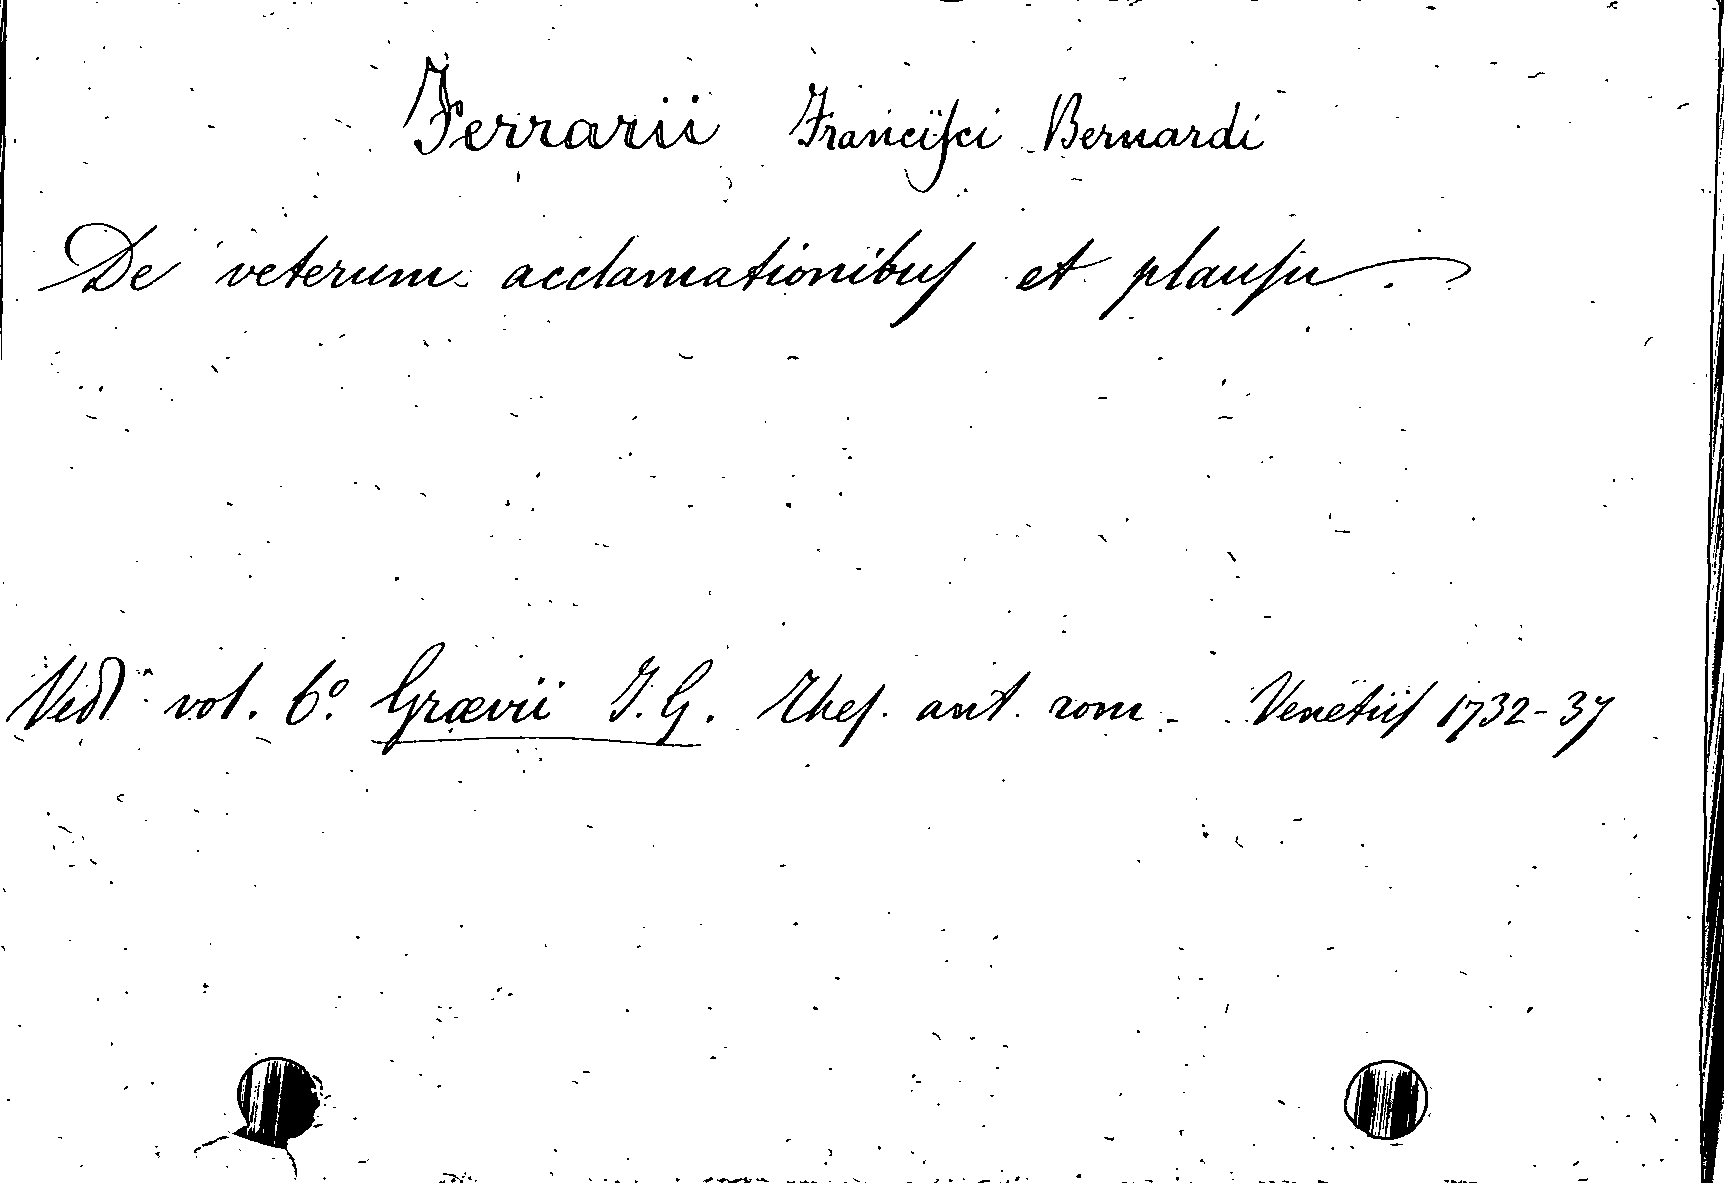 Ferrarii Francisci Bernardi
De veterum acclamationibus et plausu.
Vedi vol. 6º Grævii J. G. Thes. ant. rom. Venetiis 1732-37